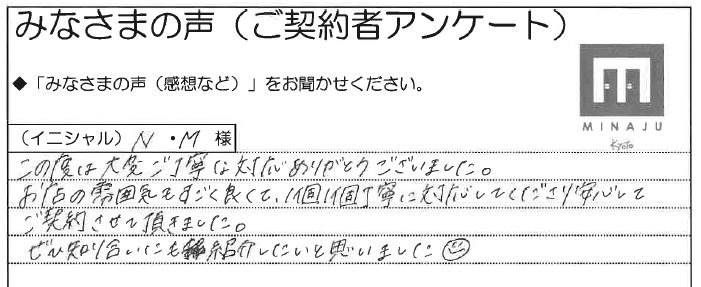 みなさまの声（ご契約者アンケート）
◆「みなさまの声（感想など）」をお聞かせください。
MINAJU
Kyoto
（イニシャル）N・M 様
この度は大変ご丁寧な対応ありがとうございました。
お店の雰囲気もすごく良くて、1個1個丁寧に対応してくださり安心して
ご契約させて頂きました。
ぜひ知り合いにも紹介したいと思いました